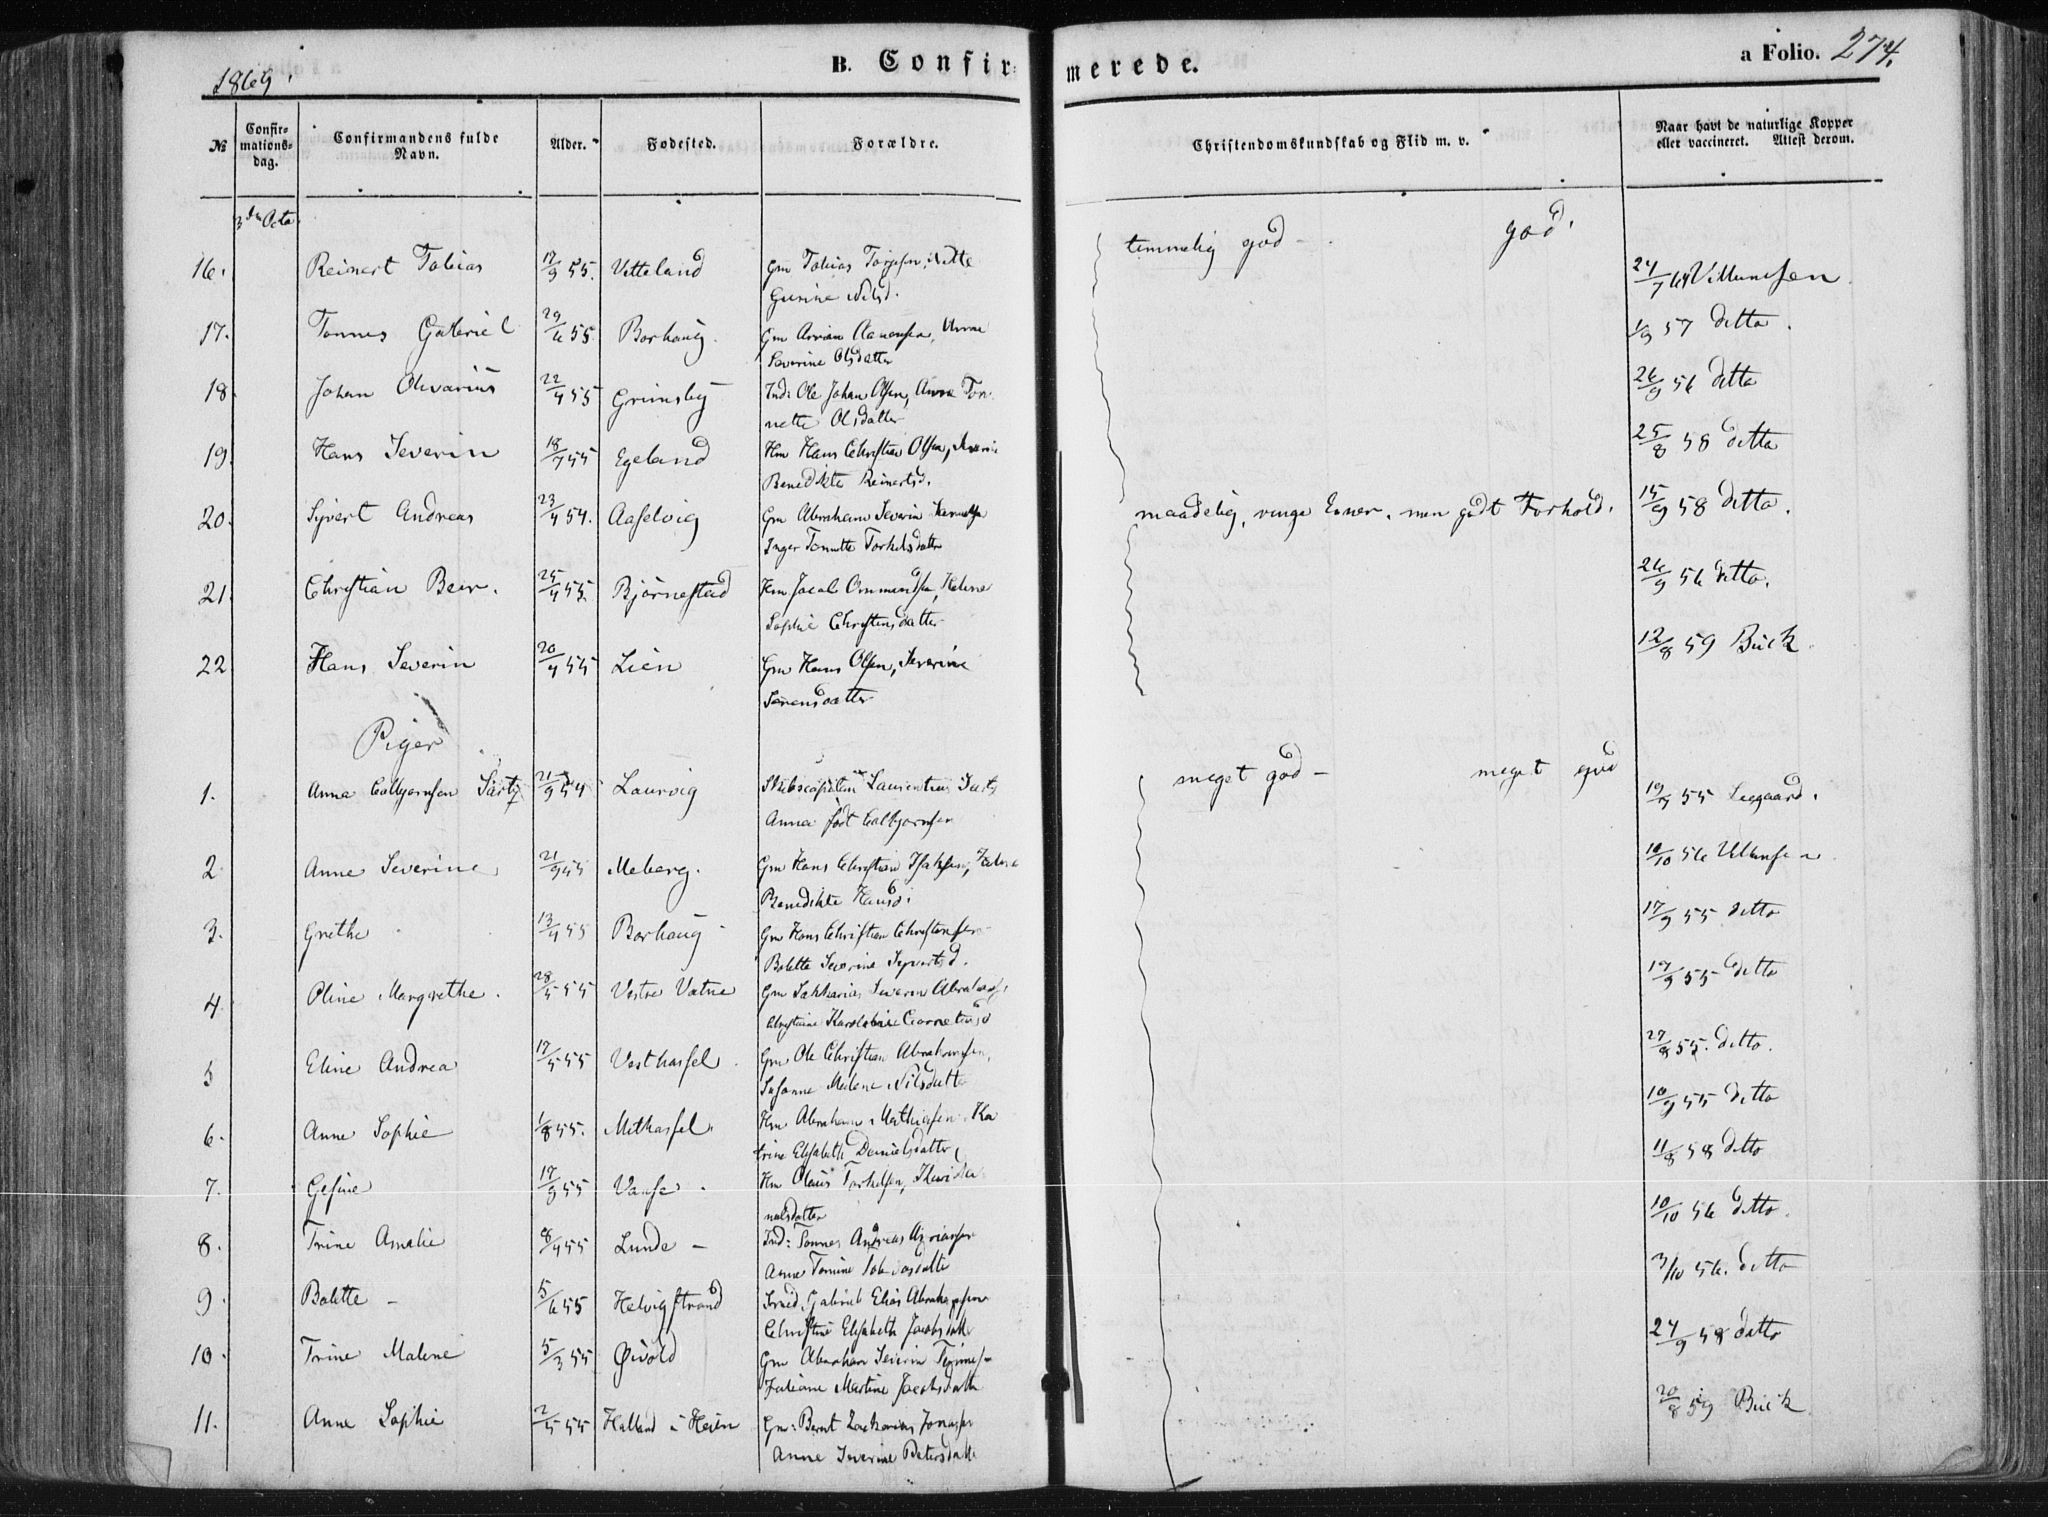 1869.
B. Confirmerede.
a Folio. 274.
№
Confirmationsdag.
Confirmandens fulde Navn.
Alder.
Fødested.
Forældre.
Christendomskundskab og Flid m. v.
Naar havt de naturlige Kopper eller vaccineret. Attest derom.
3die Octo
16. Reinert Tobias 17/9 55. Vetteland Gm Tobias temmelig god - god. 24/7 Villumsen
Gurine Nilsd.
17. Tønnes Gabriel 29/6 55. Borhaug. Gm 1/9 57 ditto.
Severine Olsdatter
18 Johan Olevarius 22/4 55 Grimsby Ind: Ole Johan Olsen, Anne Ton 26/9 56 ditto
nette Olsdatter
19. Hans Severin 18/7 55 Egeland Hm Hans Christian Olsen, 25/8 58 ditto
Benedikte Reinertsd.
20. Syvert Andreas 23/4 54. Aaselvig Gm Abraham Severin maadelig, ringe Evner, men godt Forhold. 15/9 58 ditto.
Inger Tonette Torkelsdatter
21. Christian Beer. 25/4 55. Bjørnestad Hm Jacob Ommundsen, Helene 26/9 56 ditto.
Sophie Christensdatter
22 Hans Severin 20/4 55 Lien Gm Hans Olsen, Severine 12/8 59 Buck.
Sørensdatter
Piger
1. Anna 21/9 54 Laurvig Skibscapitain Laurentius meget god - meget god 19/9 55
Anna født
2. Anne Severine 21/9 55 Meberg. Gm Hans Christian 10/10 56 Villumsen
Benedikte Hansd:
3. Grethe 13/4 55 Borhaug Gm Hans Christian Christensen 17/9 55 ditto
Bolette Severine Syvertsd.
4 Oline Margrethe. 28/5 55 Vestre Vatne Gm Sakkarias Severin 17/9 55 ditto
5 Eline Andrea 17/5 55 Vesthasfel. Gm Ole Christian Abrahamsen, 27/8 55. ditto.
Susanne Malene Nilsdatter
6. Anne Sophie 1/8 55. Mithasfel. Hm Abraham Mathiasen Ka 10/9 55 ditto
trine Elisabeth Danielsdatter
7. Gesine 17/9 55 Vanse. Hm Olaus Torkelsen, 11/8 58 ditto
nielsdatter
8. Trine Amalie 8/4 55 Lunde - Ind: Tønnes Andreas 10/10 56 ditto.
Anne Tomine
9. Bolette - 5/6 55 Helvigstrand Gabriel Elias 3/10 56. ditto
Christine Elisabeth Jacobsdatter
10. Trine Malene 5/3 55 Øivold Gm Abraham Severin 24/9 58 ditto
Juliane Martine Jacobsdatter
11. Anne Sophie 2/5 55 Halland i Heien Gm: Bernt Zacharias Jonassen 20/8 59 Buck
Anne Severine Petersdatter